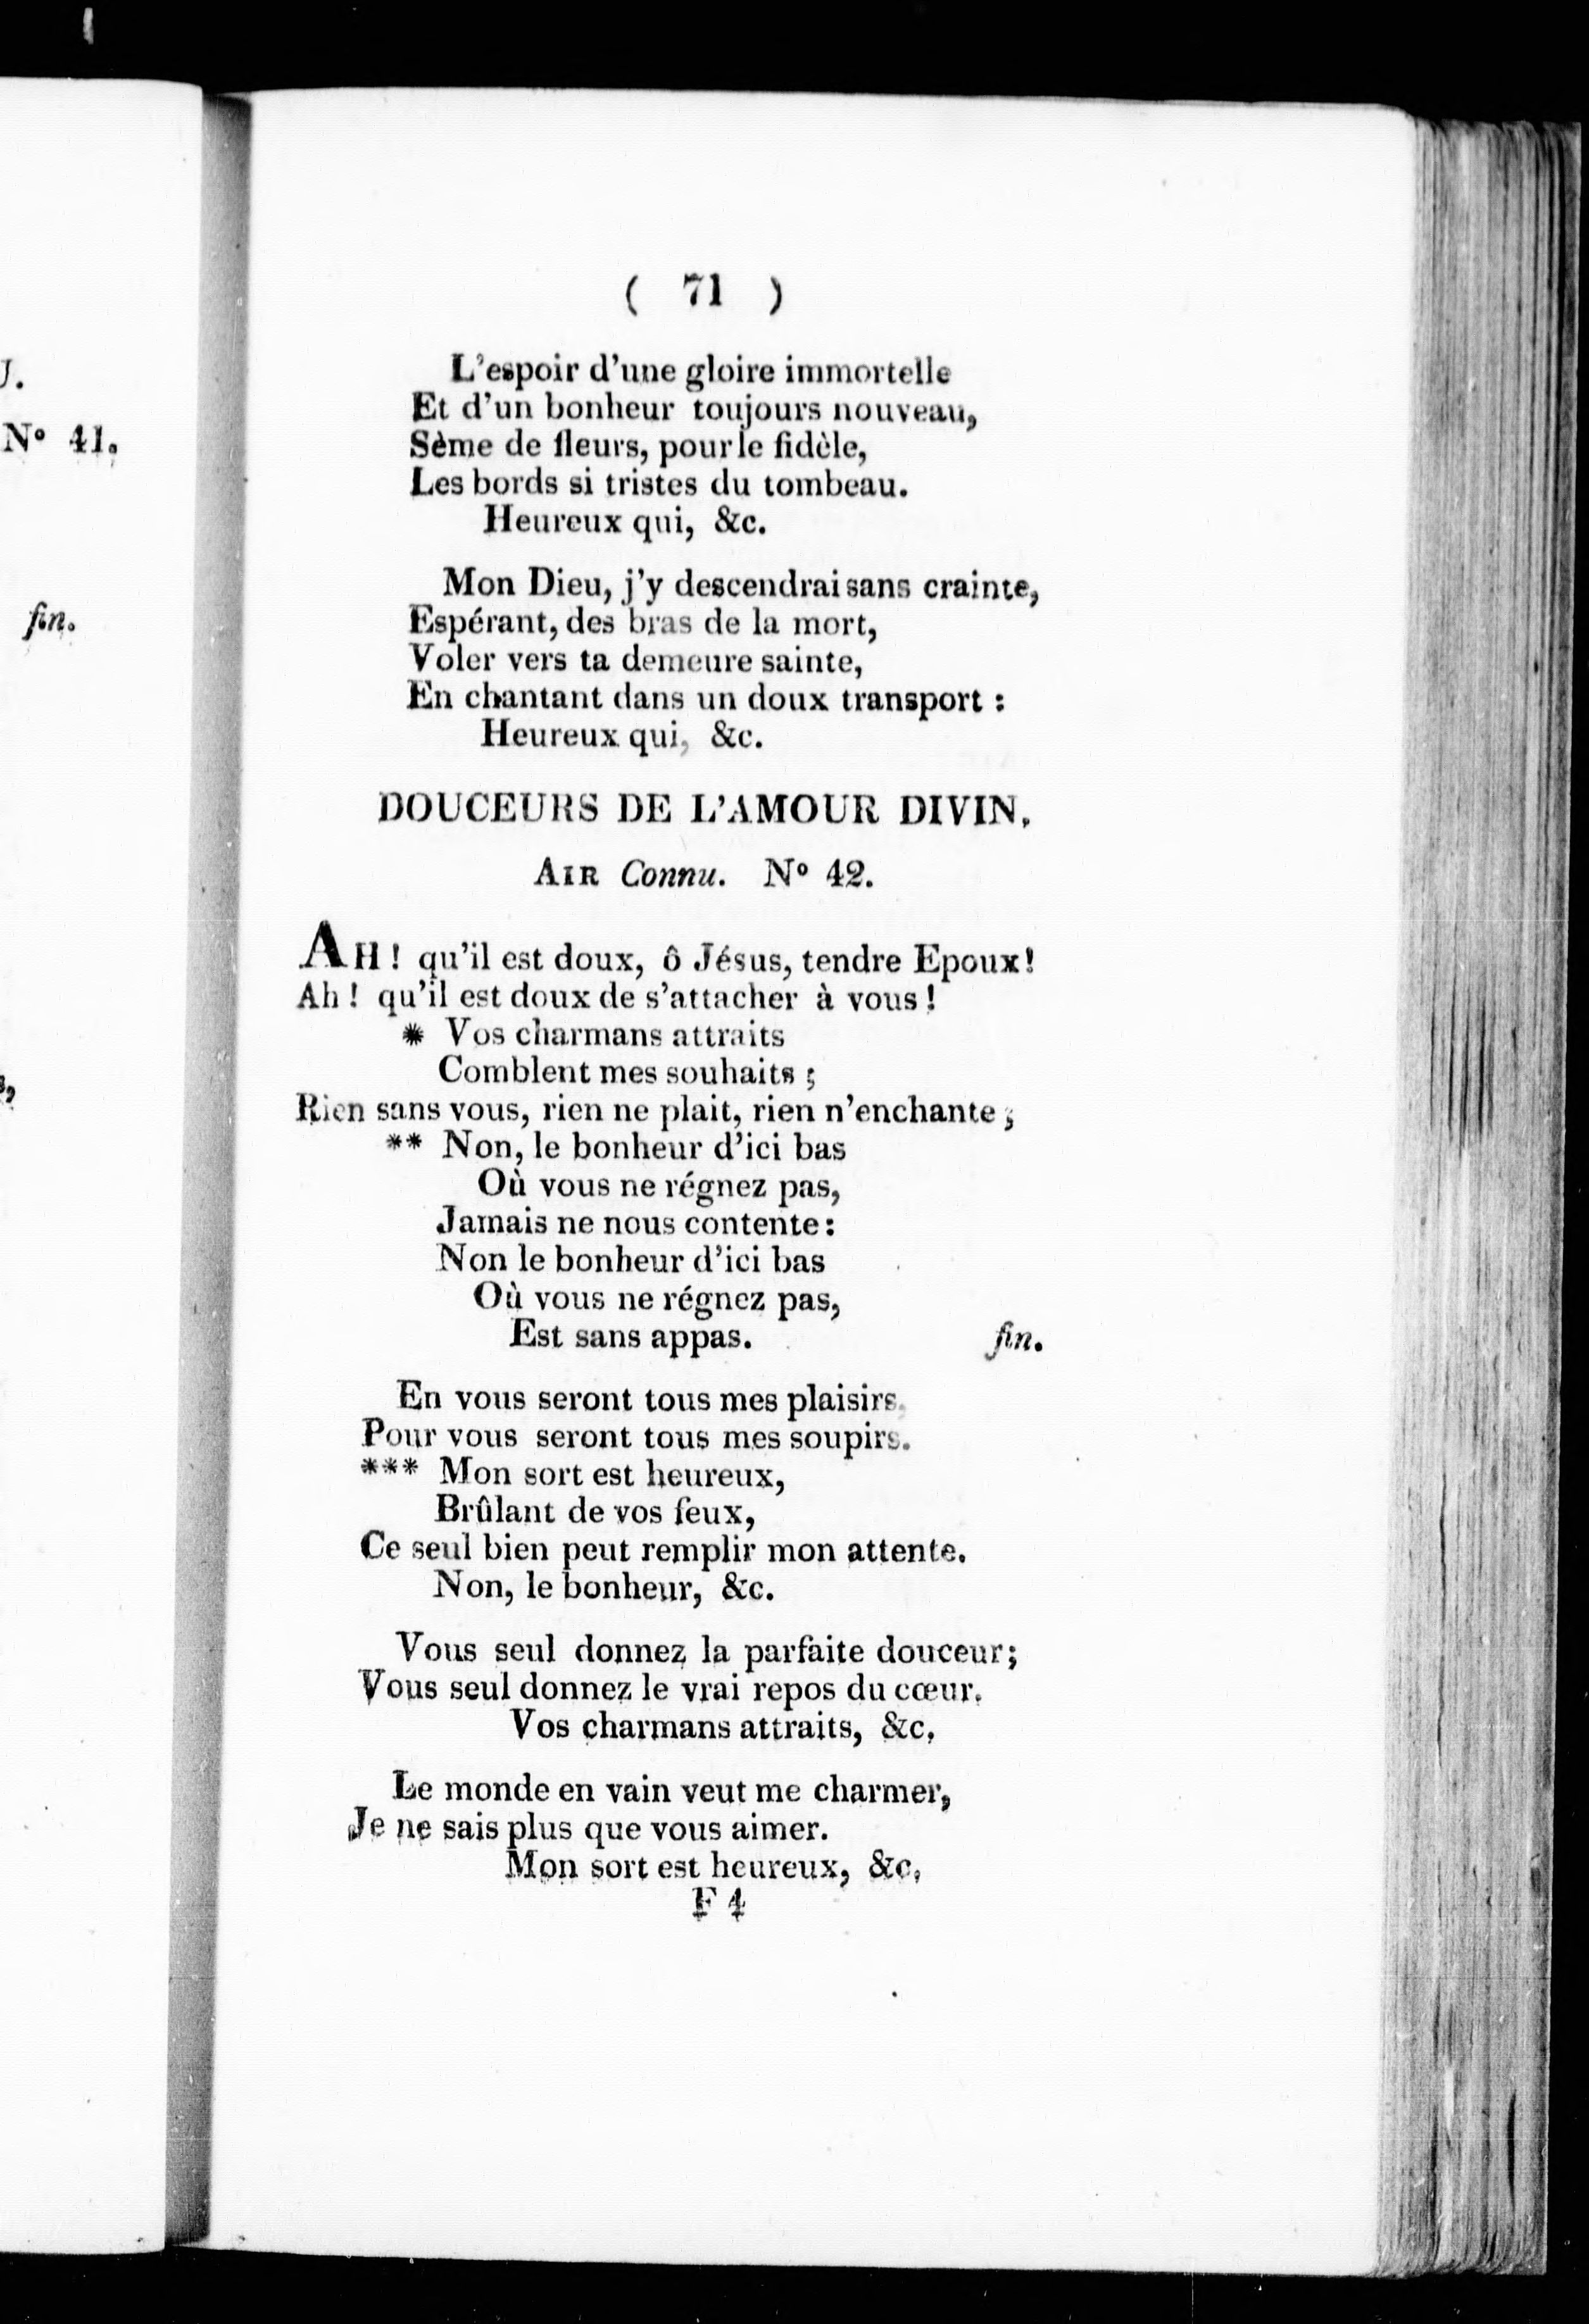 J.
N° 41.
fin.
s,
( 71 )
L'espoir d'une gloire immortelle
Et d'un bonheur toujours nouveau,
Sème de fleurs, pour le fidèle,
Les bords si tristes du tombeau.
Heureux qui, &c.
Mon Dieu, j'y descendrai sans crainte,
Espérant, des bras de la mort,
Voler vers ta demeure sainte,
En chantant dans un doux transport :
Heureux qui, &c.
DOUCEURS DE L'AMOUR DIVIN.
AIR Connu. N° 42.
AH ! qu'il est doux, ô Jésus, tendre Epoux!
Ah ! qu'il est doux de s'attacher à vous !
* Vos charmans attraits
Comblent mes souhaits ;
Rien sans vous, rien ne plait, rien n'enchante ;
** Non, le bonheur d'ici bas
Où vous ne régnez pas,
Jamais ne nous contente :
Non le bonheur d'ici bas
Où vous ne régnez pas,
Est sans appas. fin.
En vous seront tous mes plaisirs,
Pour vous seront tous mes soupirs.
*** Mon sort est heureux,
Brûlant de vos feux,
Ce seul bien peut remplir mon attente.
Non, le bonheur, &c.
Vous seul donnez la parfaite douceur;
Vous seul donnez le vrai repos du cœur.
Vos charmans attraits, &c.
Le monde en vain veut me charmer,
Je ne sais plus que vous aimer.
Mon sort est heureux, &c.
F 4